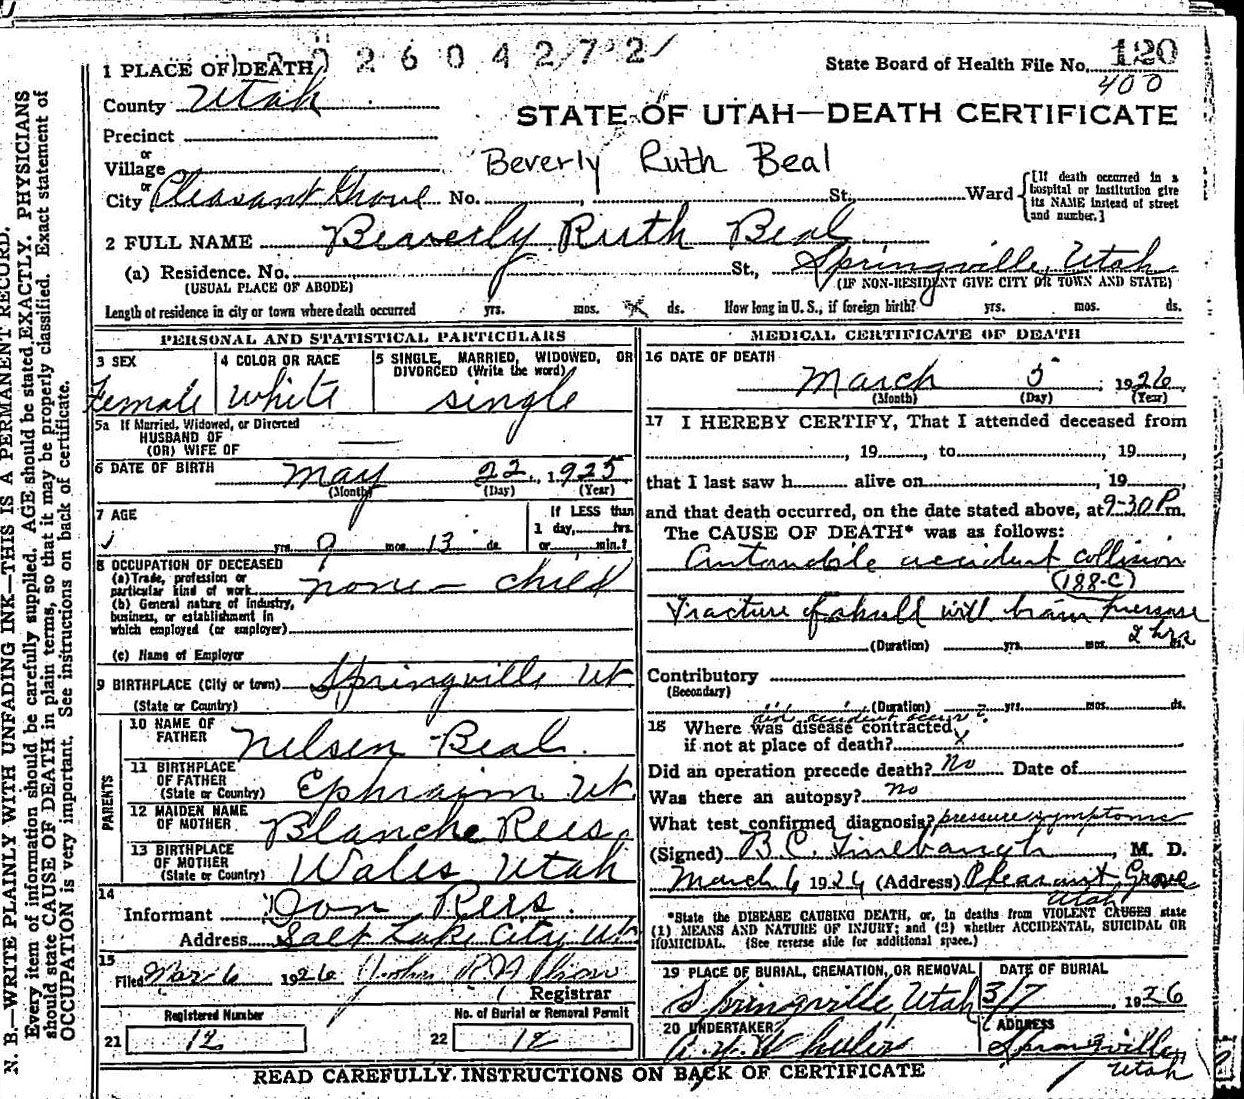 1 PLACE OF DEATH
2 6 0 4 2 7 2
State Board of Health File No. 120
400
County Utah
STATE OF UTAH—DEATH CERTIFICATE
Precinct
or
Village
Beverly Ruth Beal
or
City Pleasant Grove No. St. Ward
[If death occurred in a
hospital or institution give
its NAME instead of street
and number.]
2 FULL NAME Beverly Ruth Beal
(a) Residence. No. St., Springville, Utah
(USUAL PLACE OF ABODE)
(IF NON-RESIDENT GIVE CITY OR TOWN AND STATE)
Length of residence in city or town where death occurred yrs. mos. ds. How long in U. S., if foreign birth? yrs. mos. ds.
PERSONAL AND STATISTICAL PARTICULARS
3 SEX
Female
4 COLOR OR RACE
White
5 SINGLE, MARRIED, WIDOWED, OR
DIVORCED (Write the word)
single
5a If Married, Widowed, or Divorced
HUSBAND OF
(OR) WIFE OF
6 DATE OF BIRTH May 22, 1925
(Month) (Day) (Year)
7 AGE
yrs. 9 mos. 13 ds.
If LESS than
1 day, hrs.
or min.?
8 OCCUPATION OF DECEASED
(a) Trade, profession or
particular kind of work none - child
(b) General nature of industry,
business, or establishment in
which employed (or employer)
(c) Name of Employer
9 BIRTHPLACE (City or town) Springville Ut
(State or Country)
PARENTS
10 NAME OF
FATHER Nelsen Beal
11 BIRTHPLACE
OF FATHER
(State or Country) Ephraim Ut
12 MAIDEN NAME
OF MOTHER Blanche Rees
13 BIRTHPLACE
OF MOTHER
(State or Country) Wales Utah
14
Informant Don Rees
Address Salt Lake City Ut
15
Filed Mar 6 1926 John
Registrar
Registered Number
21 12
No. of Burial or Removal Permit
22 12
MEDICAL CERTIFICATE OF DEATH
16 DATE OF DEATH
March 5, 1926
(Month) (Day) (Year)
17 I HEREBY CERTIFY, That I attended deceased from
, 19 , to , 19 ,
that I last saw h alive on , 19 ,
and that death occurred, on the date stated above, at 9-30 P m.
The CAUSE OF DEATH* was as follows:
Automobile accident collision
(188-C)
Fracture of skull with brain pressure
2 hrs
(Duration) yrs. mos. ds.
Contributory
(Secondary)
(Duration) yrs. mos. ds.
did accident occur?
18 Where was disease contracted
if not at place of death? x
Did an operation precede death? No Date of
Was there an autopsy? no
What test confirmed diagnosis? pressure symptoms
(Signed) B. C. Linebaugh, M. D.
March 6 1926 (Address) Pleasant Grove
Utah
*State the DISEASE CAUSING DEATH, or, in deaths from VIOLENT CAUSES state
(1) MEANS AND NATURE OF INJURY; and (2) whether ACCIDENTAL, SUICIDAL OR
HOMICIDAL. (See reverse side for additional space.)
19 PLACE OF BURIAL, CREMATION, OR REMOVAL
Springville, Utah
DATE OF BURIAL
3/7, 1926
20 UNDERTAKER
A. Y. Wheeler
ADDRESS
Springville,
Utah
READ CAREFULLY INSTRUCTIONS ON BACK OF CERTIFICATE
N. B.—WRITE PLAINLY WITH UNFADING INK—THIS IS A PERMANENT RECORD.
Every item of information should be carefully supplied. AGE should be stated EXACTLY. PHYSICIANS
should state CAUSE OF DEATH in plain terms, so that it may be properly classified. Exact statement of
OCCUPATION is very important. See instructions on back of certificate.